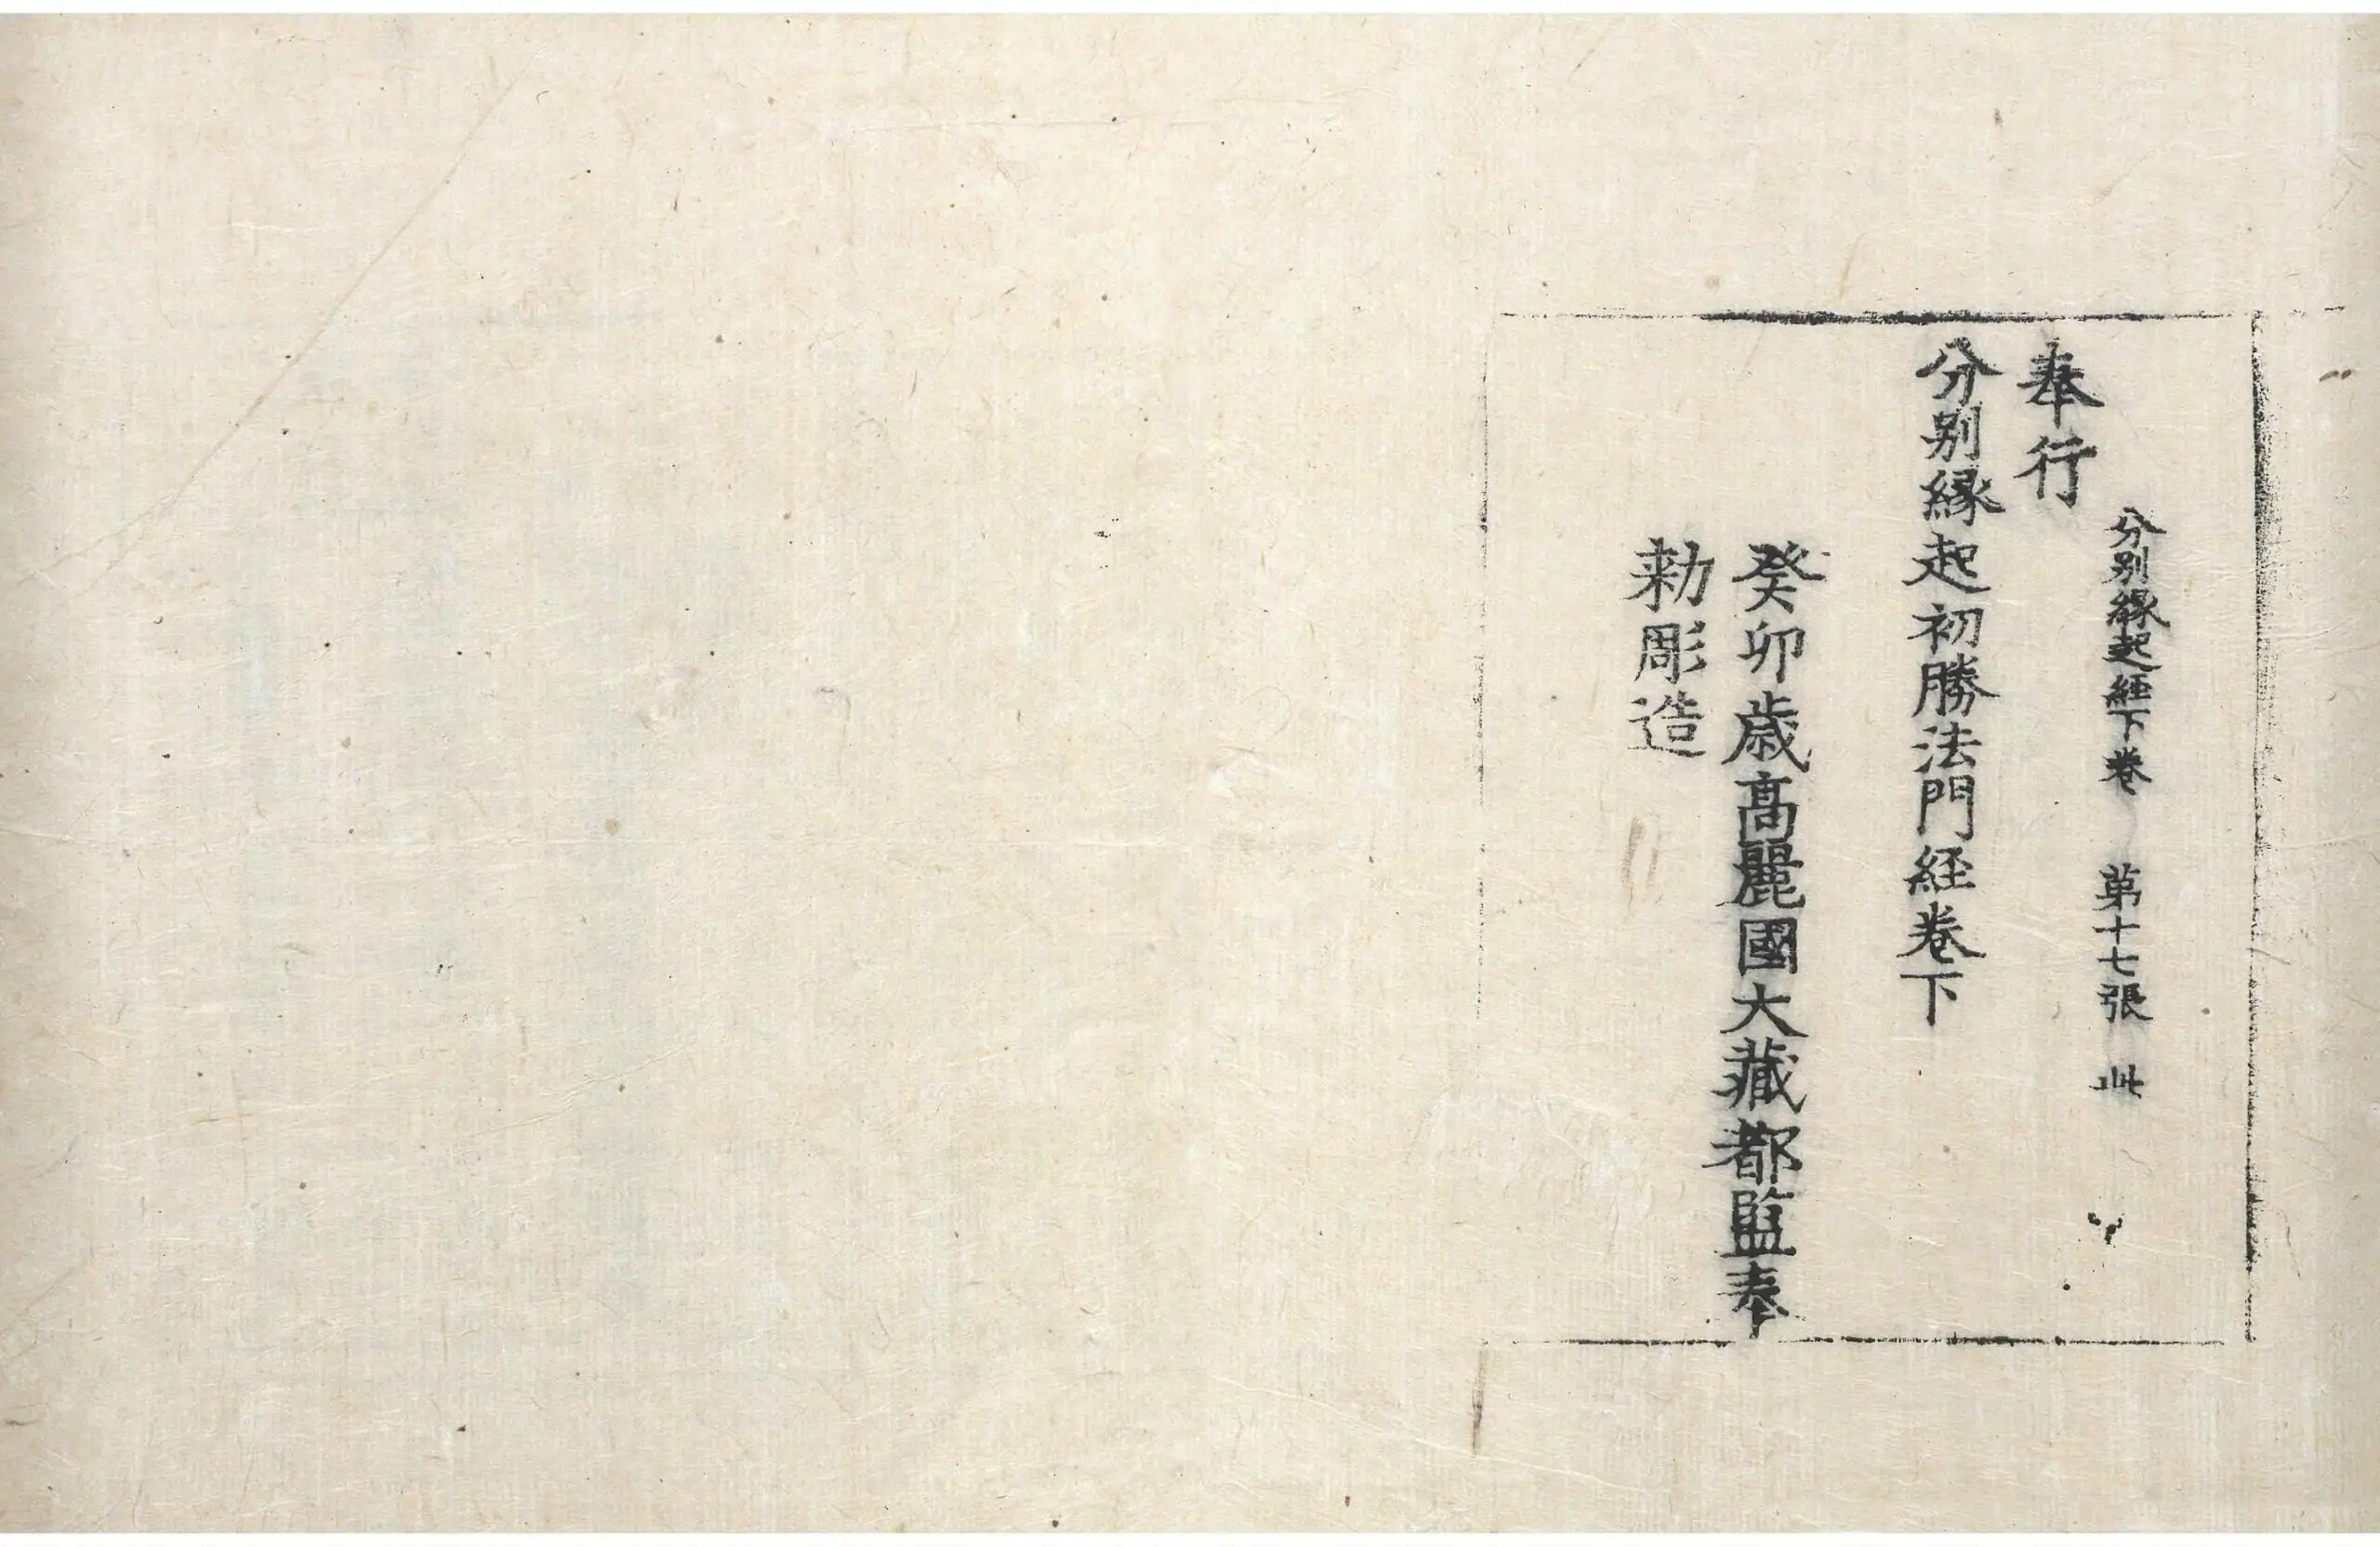 分別縁起経下巻 第十七張 此
奉行
分別縁起初勝法門経卷下
癸卯歲髙麗國大藏都監奉
勅彫造